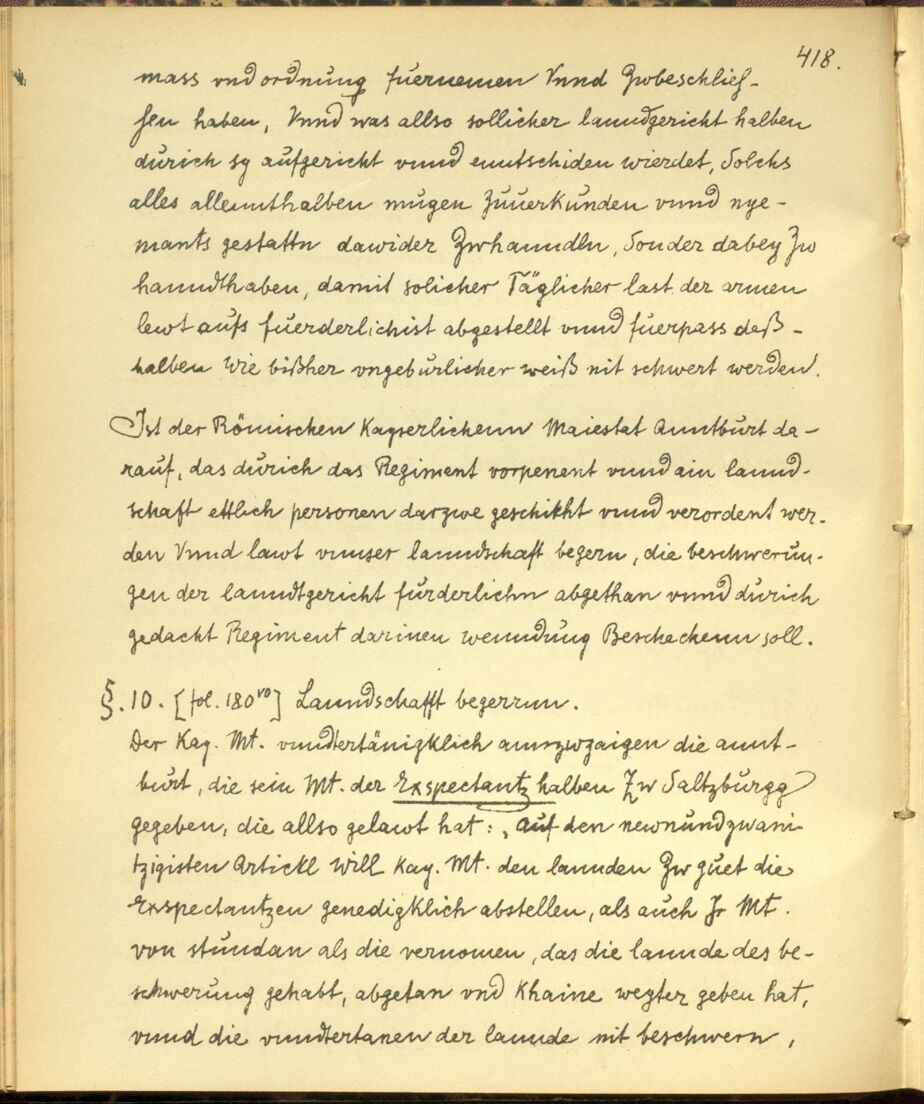 418.
mass vnd ordnung fuernemen Vnnd Zwbeschlies-
sen haben, Vnnd was allso sollicher lanndgericht halben
durich sy aufgericht vnnd enntschiden wierdet, Solchs
alles allennthalben mugen Zuuerkunden vnnd nye-
mants gestattn dawider Zwhanndln, Sonder dabey Zw
hanndthaben, damit solicher Täglicher last der armen
lewt aufs fuerderlichist abgestellt vnnd fuerpass deß-
halben wie bißher vngeburlicher weiß nit schwert werden.
Ist der Römischen Kayserlichenn Maiestat Anntburt da-
rauf, das durich das Regiment vorpenent vnnd ain lannd-
schaft ettlich personen darzwe geschikht vnnd verordent wer-
den Vnnd lawt vnnser lanndschaft begern, die beschwerun-
gen der lanndtgericht furderlichn abgethan vnnd durich
gedacht Regiment darinen wenndung Beschechenn soll.
§. 10. [fol. 180vo] Lanndschafft begerrnn.
Der Kay. Mt. vnndtertänigklich annzwzaigen die annt-
burt, die sein Mt. der Exspectantz halben Zw Saltzburgg
gegeben, die allso gelawt hat: „auf den newnundzwani
tzigisten Artickl will Kay. Mt. den lannden Zw guet die
Exspectantzen genedigklich abstellen, als auch Jr Mt.
von stundan als die vernomen, das die lannde des be-
schwerung gehabt, abgetan vnd Khaine weyter geben hat,
vnnd die vnndtertanen der lannde nit beschwern,